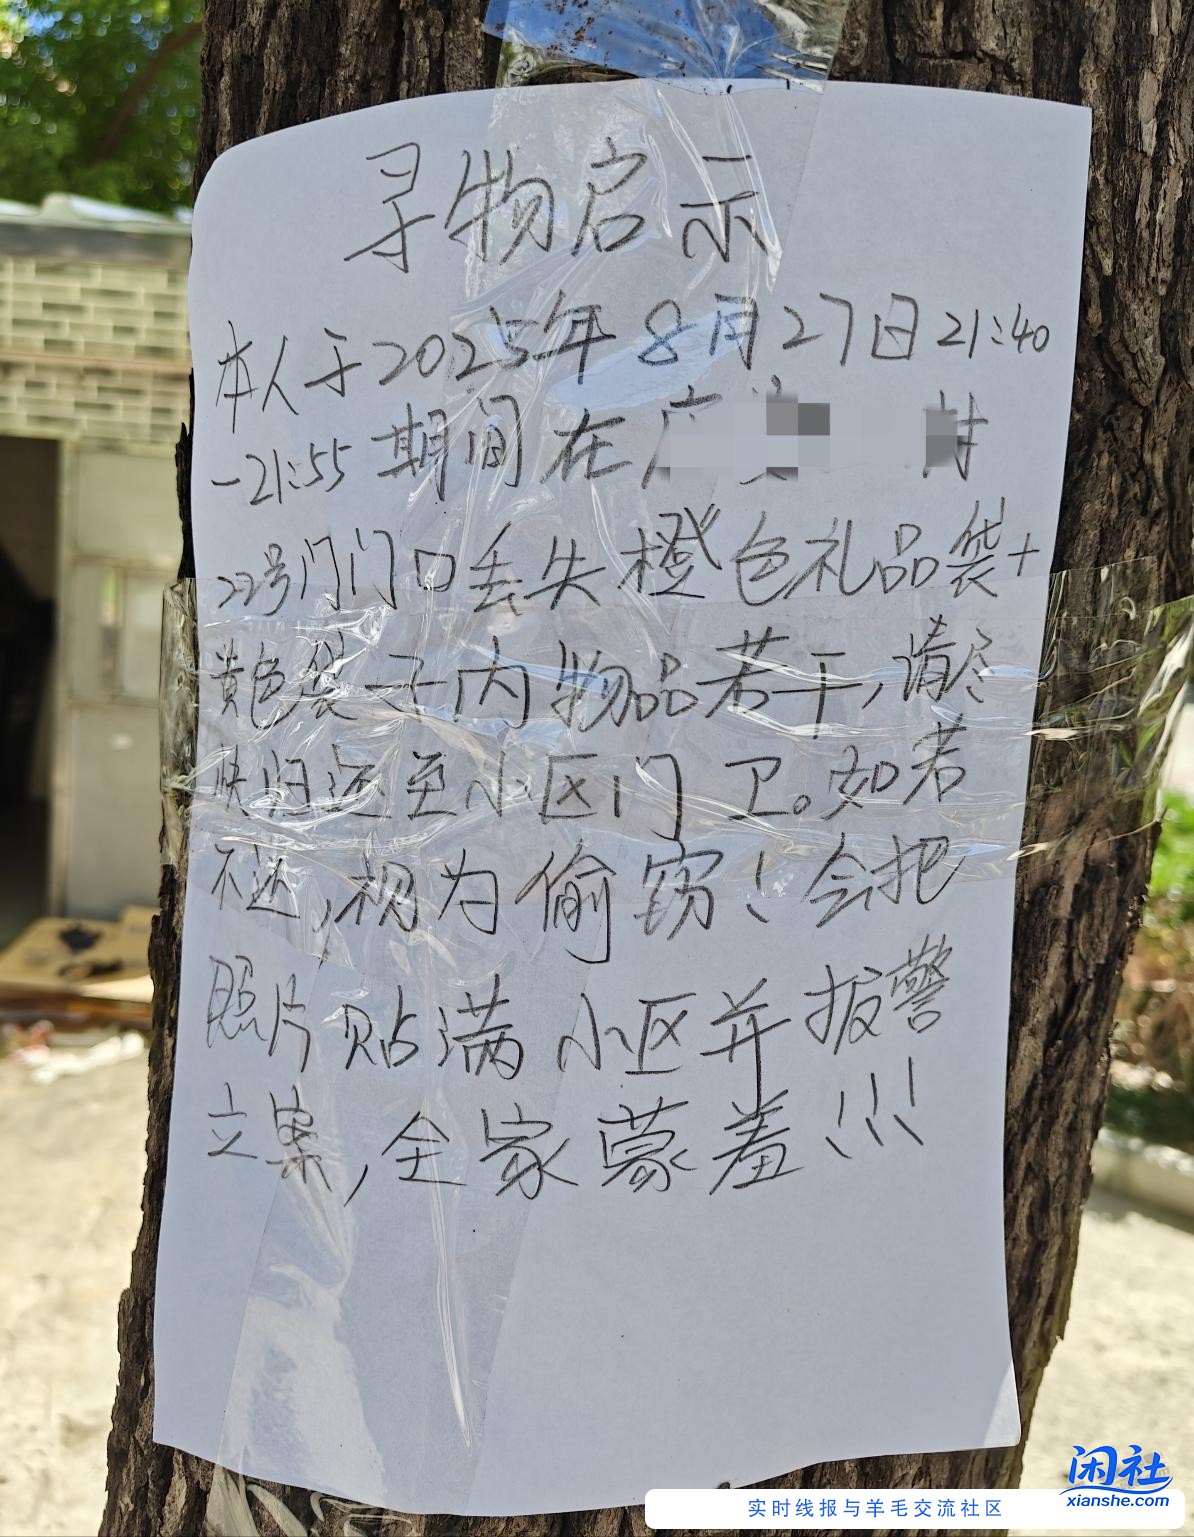 寻物启示
本人于2025年8月27日21:40
-21:55期间在广 村
22号门门口丢失橙色礼品袋+
黄色袋子内物品若干,请尽
快归还至小区门卫。如若
不还,视为偷窃!会把
照片贴满小区并报警
立案,全家蒙羞!!!
闲社
xianshe.com
实时线报与羊毛交流社区